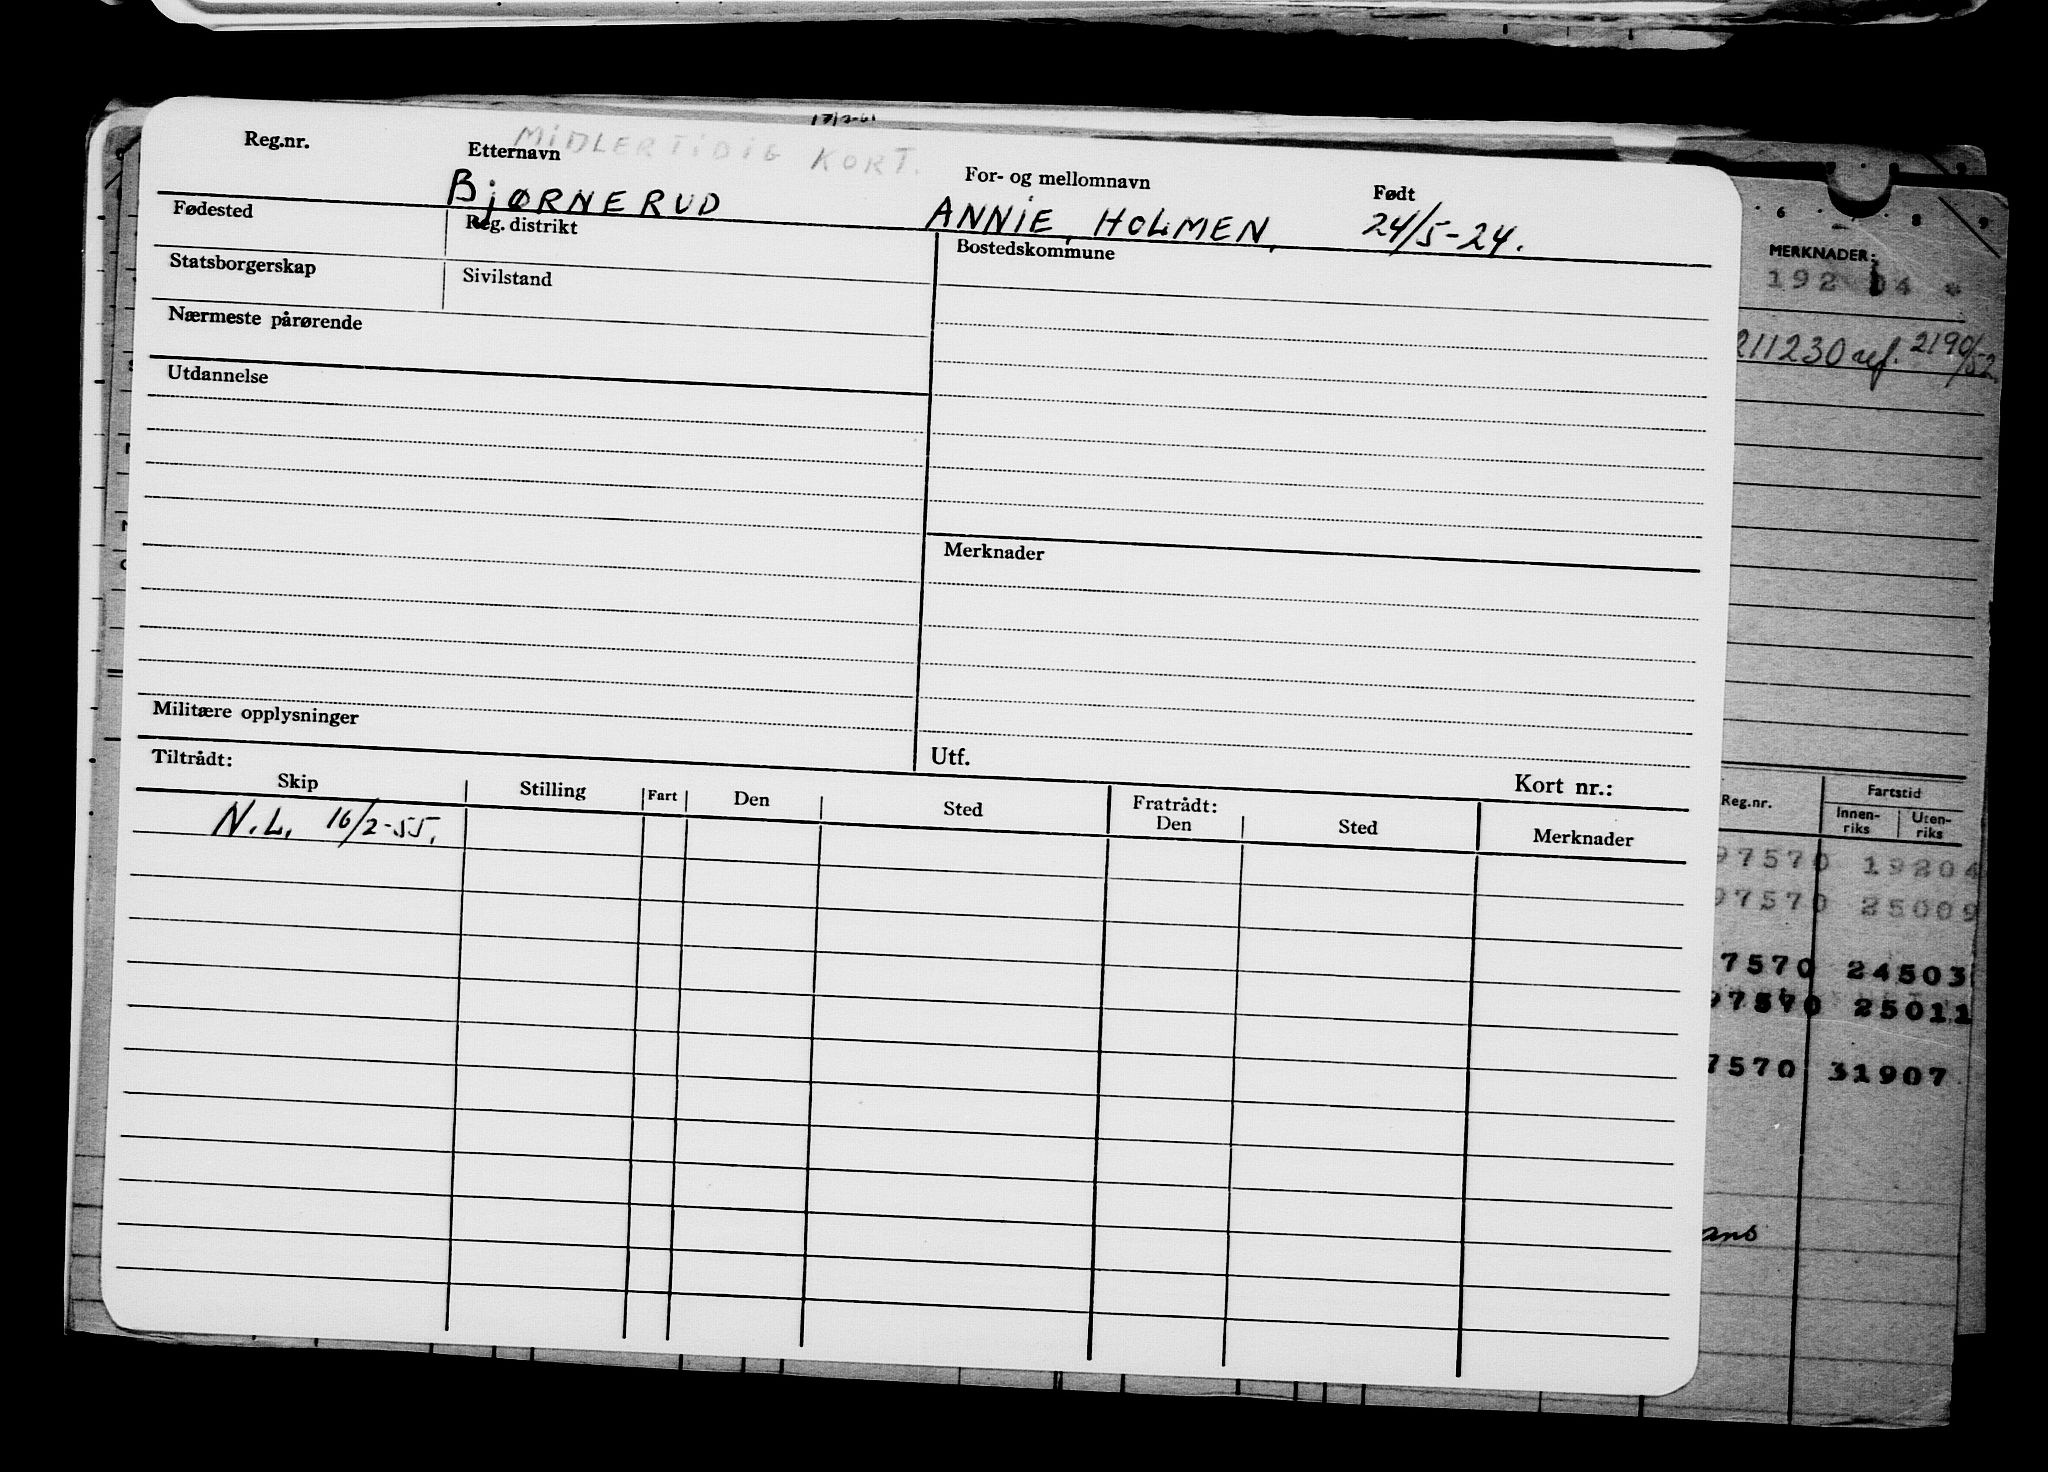 MIDLERTIDIG KORT.
Reg.nr. Etternavn For- og mellomnavn Født
BjØRNERUD ANNIE, HOLMEN, 24/5-24.
Fødested Reg. distrikt Bostedskommune
Statsborgerskap Sivilstand
Nærmeste pårørende
Utdannelse
Merknader
Militære opplysninger
Utf. Kort nr.:
Tiltrådt: Fratrådt:
Skip Stilling Fart Den Sted Den Sted Merknader
N.L. 16/2-55.
6 7 8 9
MERKNADER:
211230 ref. 2190/52.
Reg.nr. Fartstid
Innen-riks Uten-riks
97570 19204
97570 25009
7570 24503
97570 25011
7570 31907